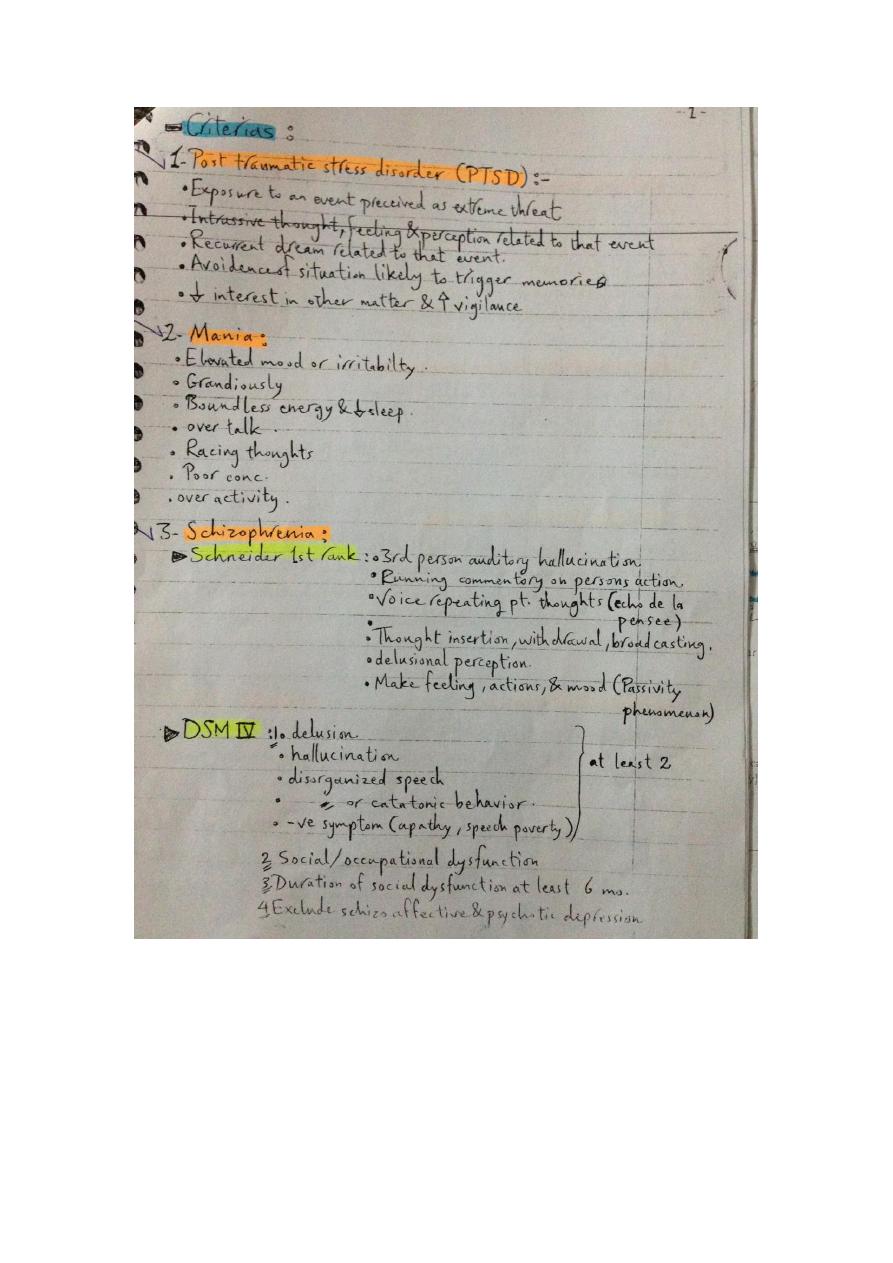 - 1 -
Criterias :
1- Post traumatic stress disorder (PTSD) :-
• Exposure to an event preceived as extreme threat
• Intrussive thought, feeling & perception related to that event
• Recurrent dream related to that event.
• Avoidence of situation likely to trigger memories
• ↓ interest in other matter & ↑ vigilance
2- Mania :
• Elevated mood or irritabilty .
• Grandiously
• Boundless energy & ↓ sleep .
• over talk .
• Racing thoughts
• Poor conc.
• over activity .
3- Schizophrenia :
▶ Schneider 1st rank : • 3rd person auditory hallucination
• Running commentory on persons action
• Voice repeating pt. thoughts (echo de la
pensee)
• Thought insertion, withdrawal, broadcasting.
• delusional perception.
• Make feeling, actions, & mood (Passivity
phenomenon)
▶ DSM IV : 1• delusion
• hallucination
at least 2
• disorganized speech
• 〃 or catatonic behavior .
• -ve symptom (apathy, speech poverty)
2 Social/occupational dysfunction
3 Duration of social dysfunction at least 6 mo.
4 Exclude schizoaffective & psychotic depression